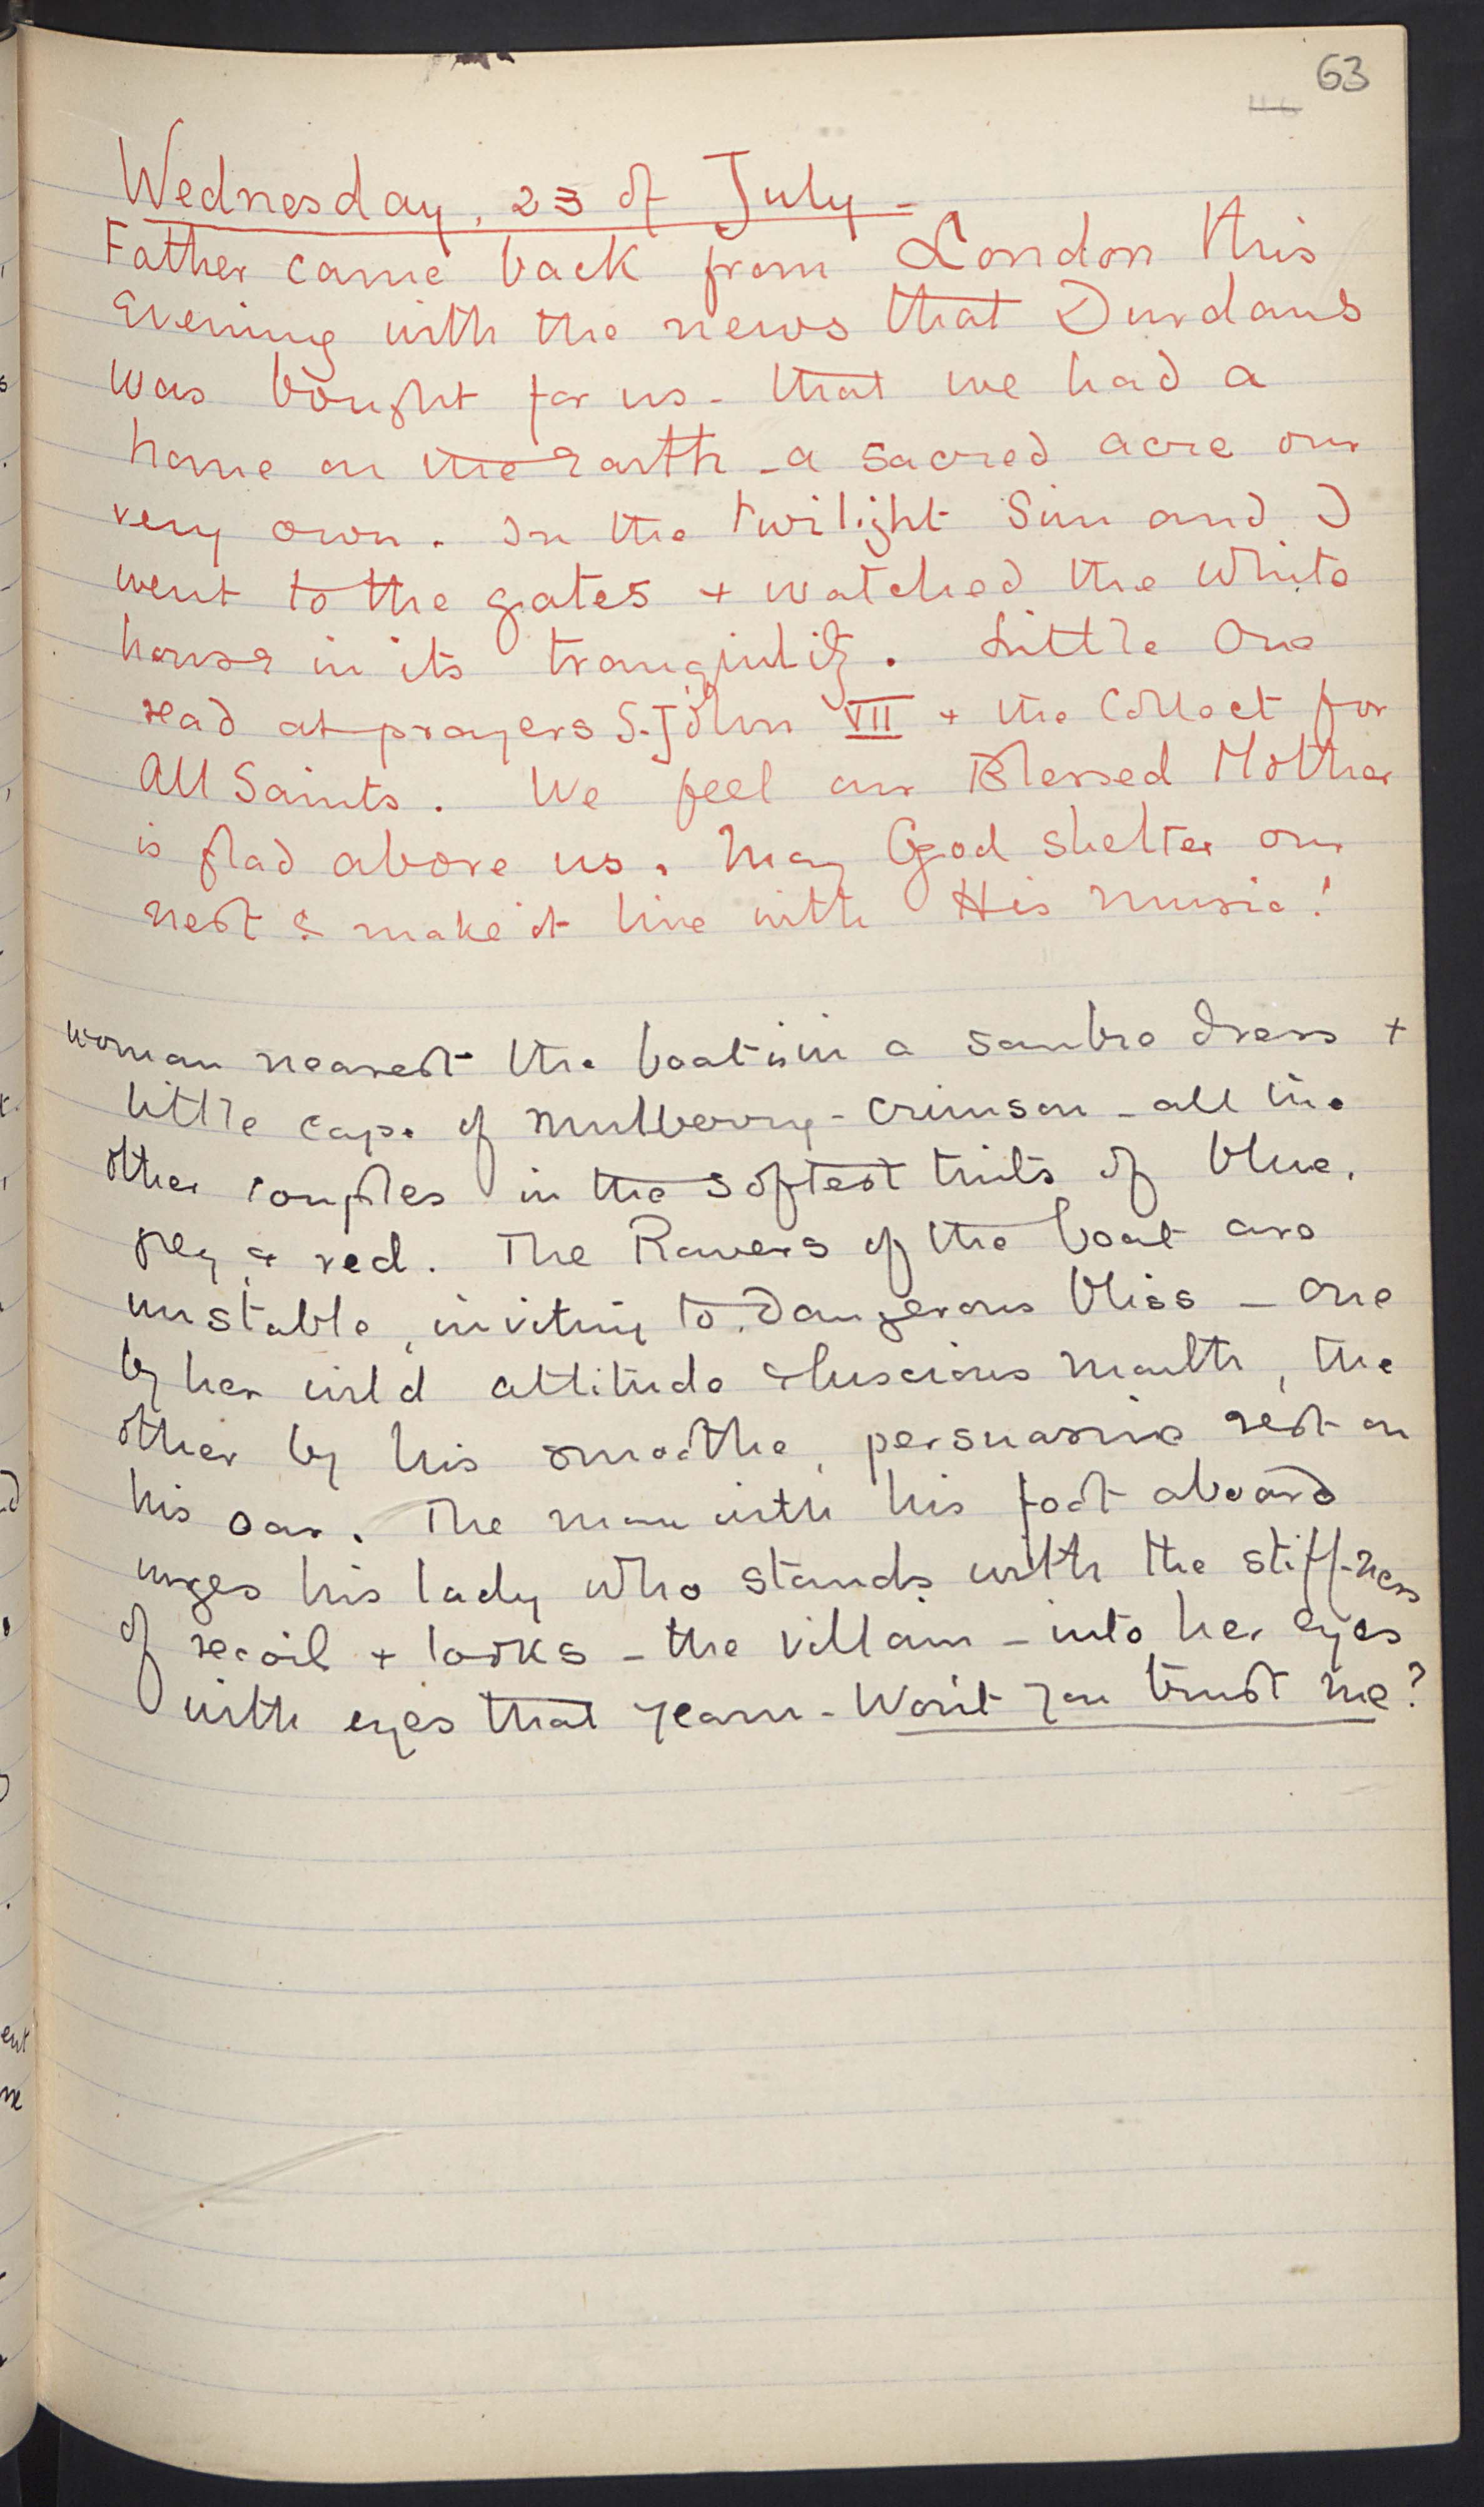 63
Wednesday, 23 of July -
Father came back from London this
Evening with the news that Durdans
was bought for us - that we had a
home on the Earth - a sacred acre our
very own. In the twilight Sim and I
went to the gates + watched the White
house in its tranquility. Little One
read at prayers S. John VII + the Collect for
All Saints. We feel our Blessed Mother
is glad above us. May God shelter our
nest & make it live with His music!
woman nearest the boat is in a sombre dress +
little cape of mulberry-crimson - all the
other couples in the softest tints of blue,
grey & red. The Rowers of the boat are
unstable, inviting to dangerous bliss - one
by her wild attitude & luscious mouth, the
other by his smoothe, persuasive rest on
his oar. The man with his foot aboard
urges his lady who stands with the stiff-ness
of recoil + looks - the villain - into her eyes
with eyes that yearn - Won't you trust me?